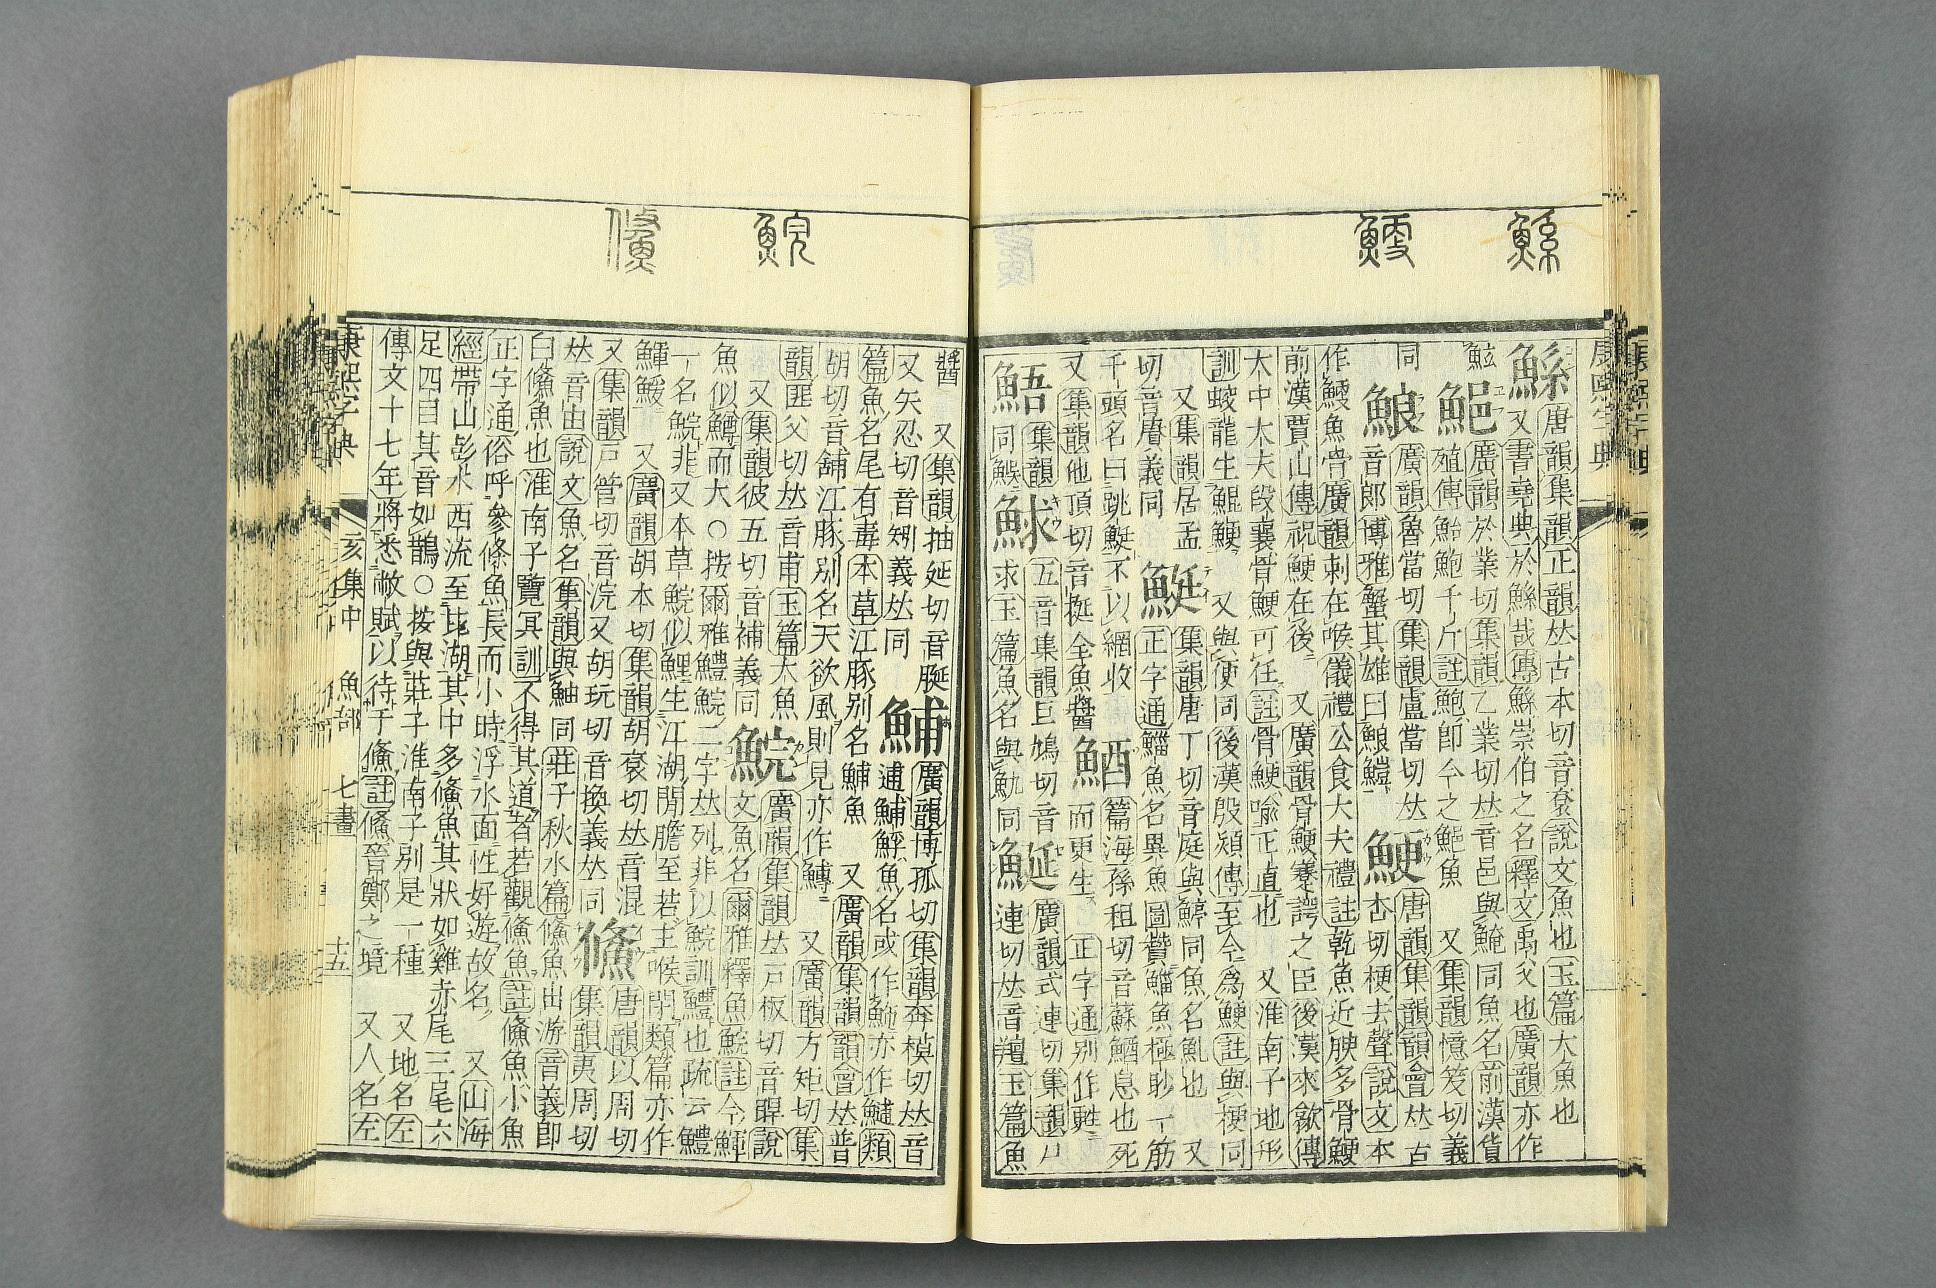 鯀 鯁
鯀 唐韻集韻正韻𠀤古本切音袞說文魚也玉篇大魚也
又書堯典於鯀哉傳鯀崇伯之名釋文禹父也廣韻亦作
鮌 䱒 廣韻於業切集韻乙業切𠀤音邑與䱎同魚名前漢貨
殖傳鮐鮑千斤註鮑卽今之䱒魚 又集韻憶笈切義
同 鯁 唐韻集韻韻會𠀤古
音郎博雅蟹其雄曰鯁鱧 杏切梗去聲說文本
作䱭魚骨廣韻刺在喉儀禮公食大夫禮註乾魚近腴多骨鯁
前漢賈山傳祝鯁在後 又廣韻骨鯁謇諤之臣後漢來歙傳
太中大夫段襄骨鯁可任註骨鯁喻正直也 又淮南子地形
訓蛟龍生鯤鯁 又與便同後漢段熲傳至今爲鯁註與梗同
又集韻居孟 鯅 集韻唐丁切音庭與䱓同魚名魟也 又
切音㕅義同 正字通鯔魚名異魚圖贊鯔魚極眇一筋
千頭名曰跳鯅不以網收
又集韻他頂切音挺全魚醬 鯂 篇海孫租切音蘇鯂息也死
而更生 正字通別作甦
鯃 集韻 鯄 五音集韻巨鳩切音 鯅 廣韻式連切集韻尸
同䱐 求玉篇魚名與魤同 連切𠀤音羶玉篇魚
鯇 鯈
醬 又集韻抽延切音脠 鯆 廣韻博孤切集韻奔模切𠀤音
又矢忍切音矧義𠀤同 逋鯆䱐魚名或作䱛亦作鱁類
篇魚名尾有毒本草江豚別名鯆魚 又廣韻集韻韻會𠀤普
胡切音鋪江豚別名天欲風則見亦作鱄 又廣韻方矩切集
韻匪父切𠀤音甫玉篇大魚 鯇 廣韻集韻𠀤戸板切音睅說
又集韻彼五切音補義同 文魚名爾雅釋魚鯇註今鯶
魚似鱒而大〇按爾雅鱧鯇二字𠀤列非以鯇訓鱧也疏云鱧
一名鯇非又本草鯇似鯉生江湖閒膽至苦主喉閉類篇亦作
鯶鰀 又廣韻胡本切集韻胡袞切𠀤音混 鯈 唐韻以周切
又集韻戸管切音浣又胡玩切音換義𠀤同 集韻夷周切
𠀤音由說文魚名集韻與鮋同莊子秋水篇鯈魚出游音義卽
白鯈魚也淮南子覽冥訓不得其道者若觀鯈魚註鯈魚小魚
正字通俗呼參條魚長而小時浮水面性好遊故名 又山海
經帶山彭水西流至芘湖其中多鯈魚其狀如雞赤尾三尾六
足四目其音如鵲〇按與莊子淮南子別是一種 又地名左
傳文十七年將悉敝賦以待于鯈註鯈晉鄭之境 又人名左
康熙字典 亥集中 魚部 七畫 十五